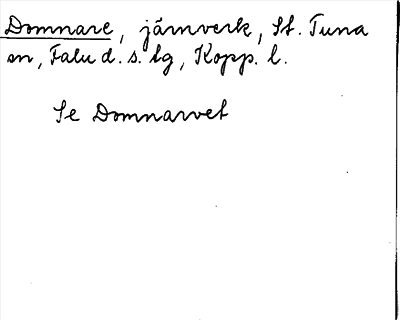 Domnare, järnverk, St. Tuna
sn, Falu d. s. tg, Kopp. l.
Se Domnarvet